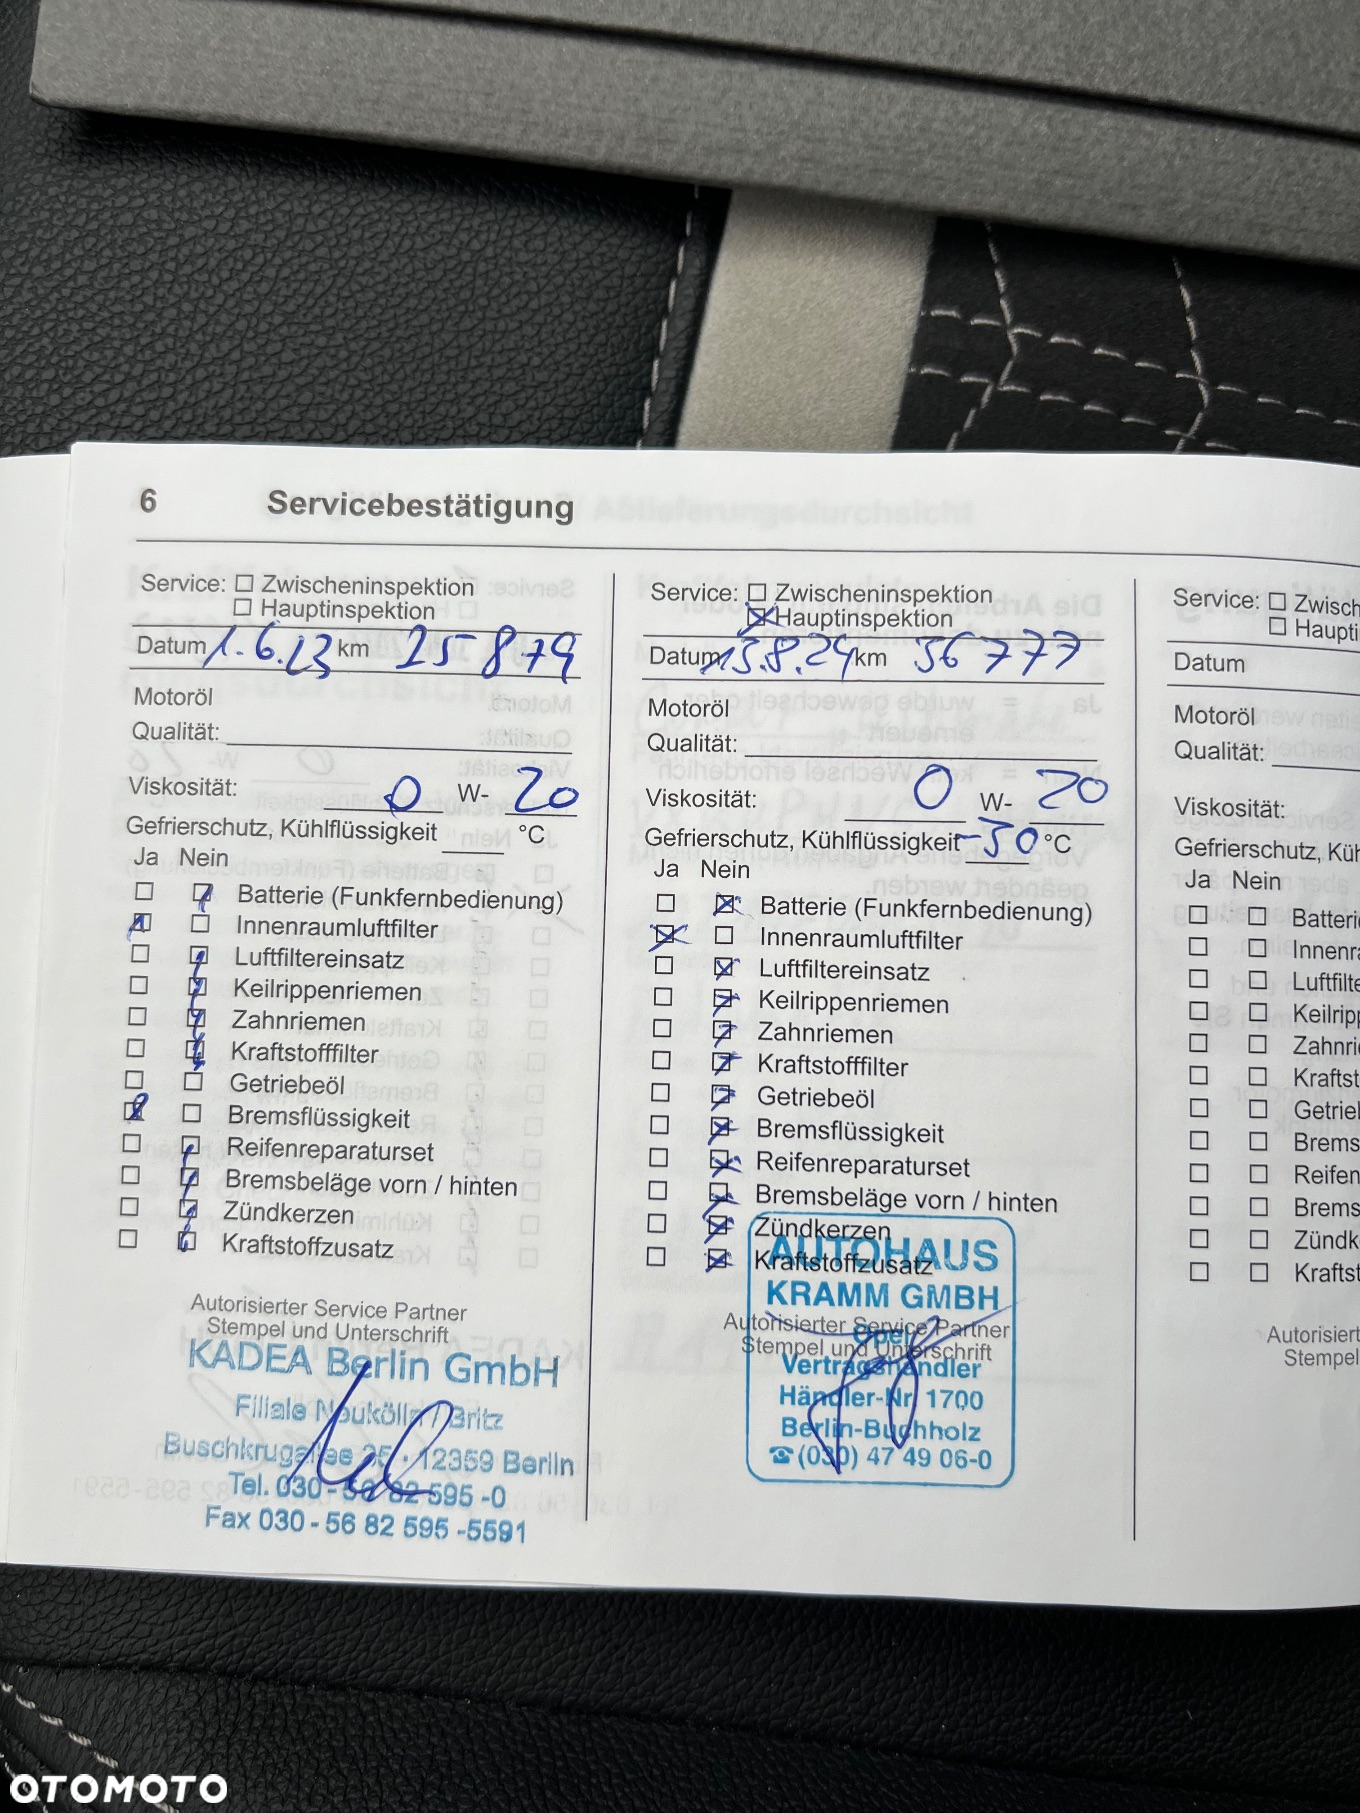 6 Servicebestätigung
Service: ☐ Zwischeninspektion
☐ Hauptinspektion
Datum 1.6.23 km 25 879
Motoröl
Qualität:
Viskosität: 0 W- 20
Gefrierschutz, Kühlflüssigkeit °C
Ja Nein
Batterie (Funkfernbedienung)
Innenraumluftfilter
Luftfiltereinsatz
Keilrippenriemen
Zahnriemen
Kraftstofffilter
Getriebeöl
Bremsflüssigkeit
Reifenreparaturset
Bremsbeläge vorn / hinten
Zündkerzen
Kraftstoffzusatz
Autorisierter Service Partner
Stempel und Unterschrift
KADEA Berlin GmbH
Filiale Neukölln / Britz
Buschkrugallee 35 · 12359 Berlin
Tel. 030 - 56 82 595 -0
Fax 030 - 56 82 595 -5591
Service: ☐ Zwischeninspektion
☒ Hauptinspektion
Datum 13.8.24 km 56 777
Motoröl
Qualität:
Viskosität: 0 W- 20
Gefrierschutz, Kühlflüssigkeit -30 °C
Ja Nein
Batterie (Funkfernbedienung)
Innenraumluftfilter
Luftfiltereinsatz
Keilrippenriemen
Zahnriemen
Kraftstofffilter
Getriebeöl
Bremsflüssigkeit
Reifenreparaturset
Bremsbeläge vorn / hinten
Zündkerzen
Kraftstoffzusatz
Autorisierter Service Partner
Stempel und Unterschrift
AUTOHAUS
KRAMM GMBH
Opel
Vertragshändler
Händler-Nr. 1700
Berlin-Buchholz
☎ (030) 47 49 06-0
Service: ☐ Zwisch
☐ Haupti
Datum
Motoröl
Qualität:
Viskosität:
Gefrierschutz, Küh
Ja Nein
Batterie
Innenra
Luftfilte
Keilripp
Zahnrie
Kraftst
Getrieb
Brems
Reifen
Brems
Zündk
Kraftst
Autorisiert
Stempel
OTOMOTO